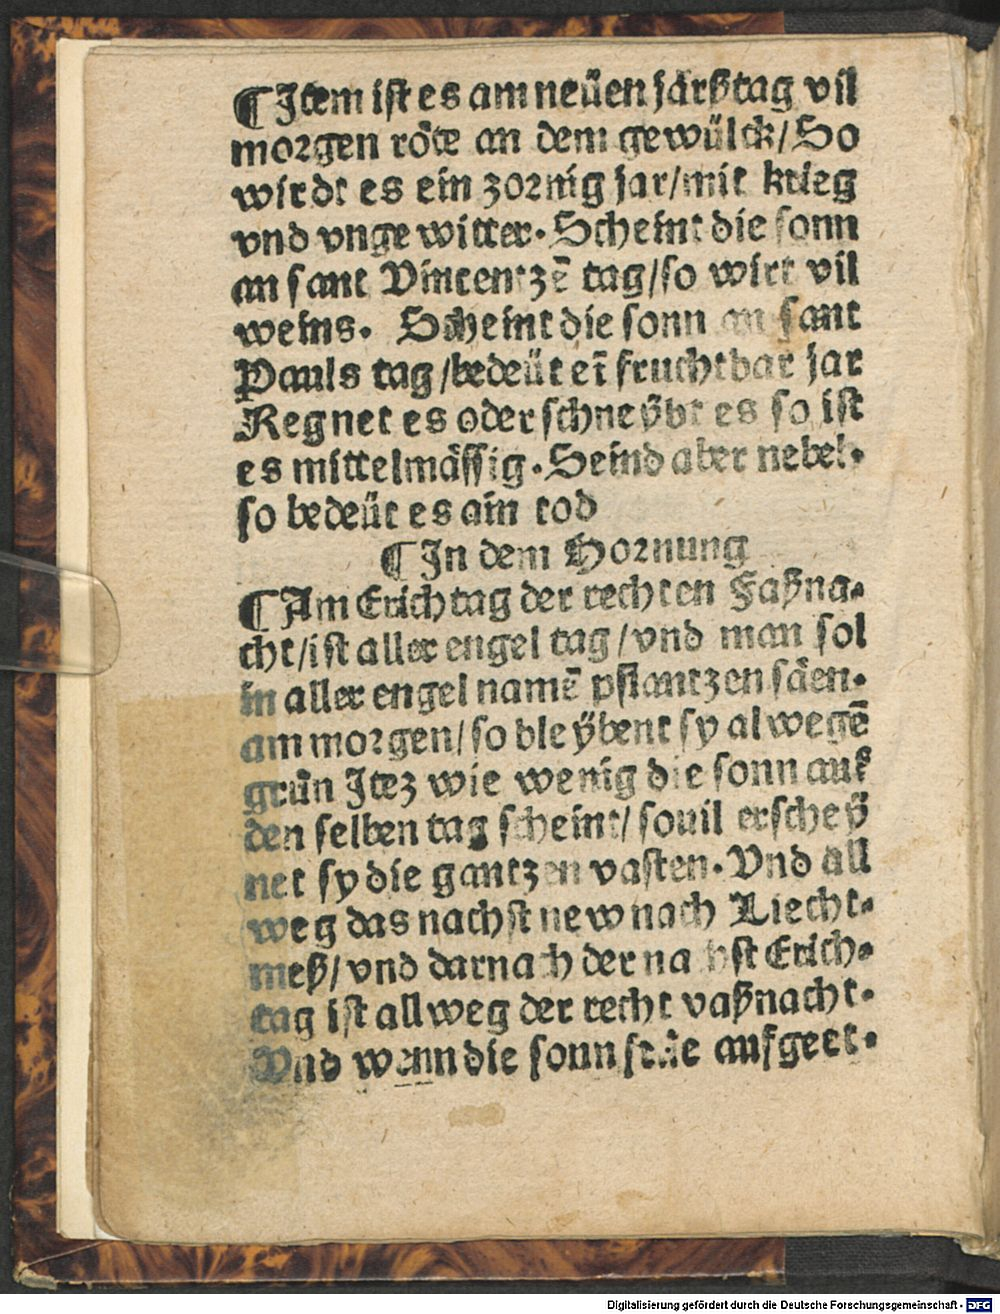 ¶Item ist es am neüen jarßtag vil
morgen röte an dem gewülck/So
wirdt es ein zornig jar/mit krieg
vnd vngewitter. Scheint die sonn
an sant Vincentzē tag/so wirt vil
weins. Scheint die sonn an sant
Pauls tag/bedeüt eī fruchtbar jar
Regnet es oder schneÿbt es so ist
es mittelmässig. Seind aber nebel.
so bedeüt es ain tod
¶In dem Hornung
¶Am Erichtag der rechten Faßna-
cht/ist aller engel tag/vnd man sol
in aller engel namē pflantzen säen.
am morgen/so bleÿbent sy alwegē
grün Itez wie wenig die sonn auf
den selben tag scheint/souil erscheÿ
net sy die gantzen vasten. Vnd all
weg das nachst new nach Liecht-
meß/vnd darnach der nachst Erich-
tag ist allweg der recht vaßnacht.
Vnd wenn die sonn frae aufgeet.
Digitalisierung gefördert durch die Deutsche Forschungsgemeinschaft - DFG